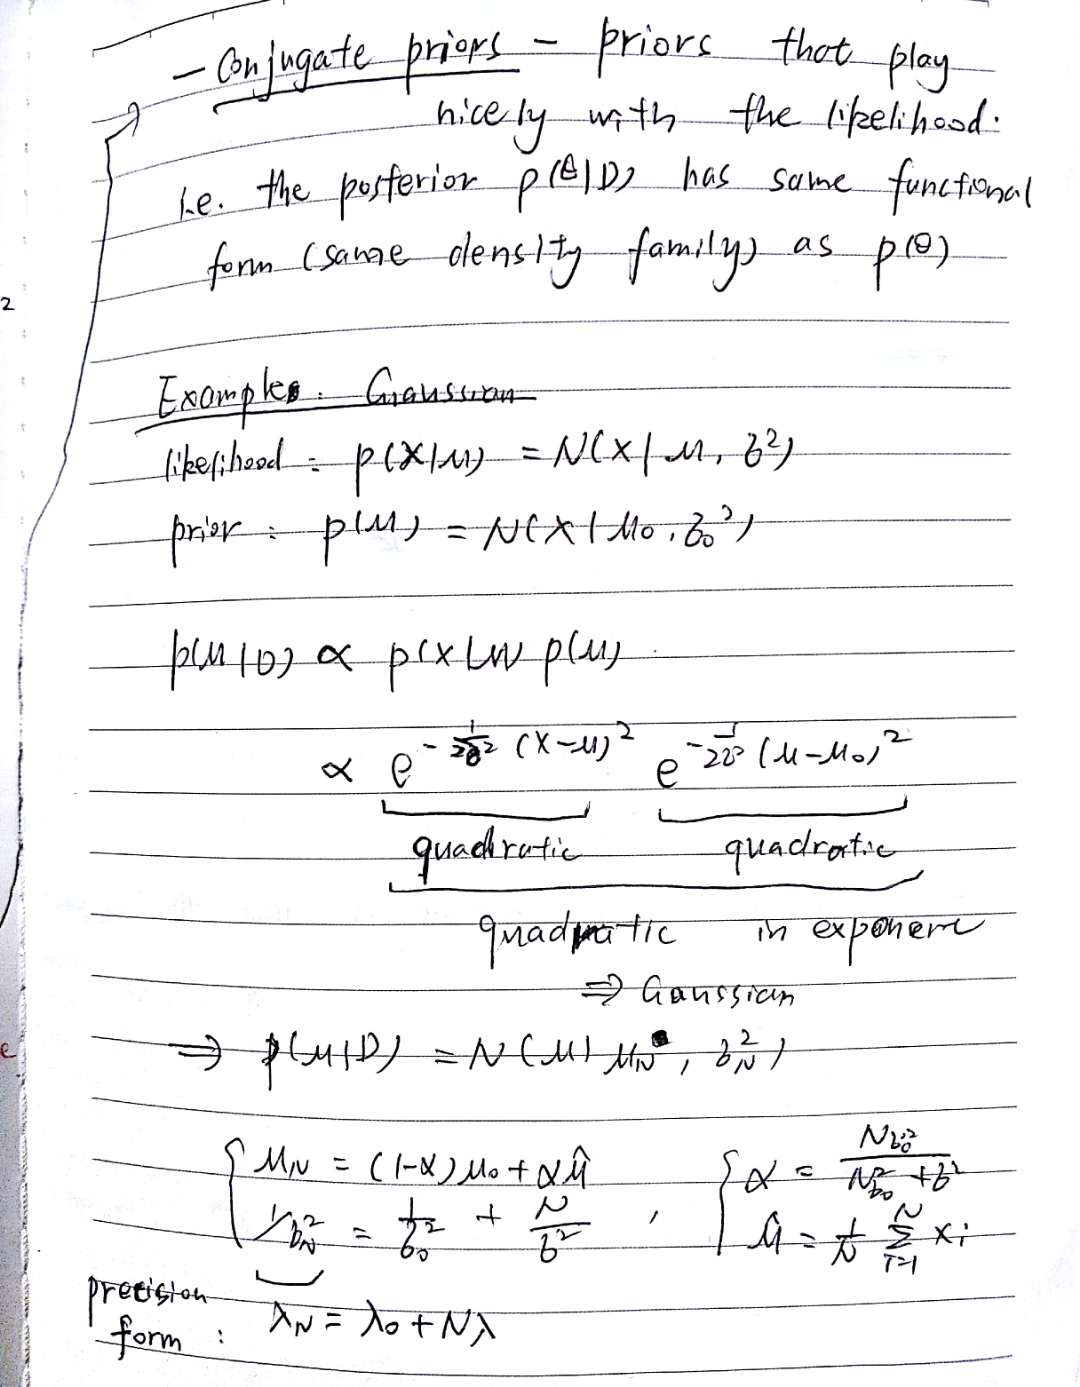 - Conjugate priors - priors that play
nicely with the likelihood.
i.e. the posterior p(θ|D) has same functional
form (same density family) as p(θ)
2
Examples: Gaussian
likelihood: p(x|μ) = N(x|μ, σ²)
prior: p(μ) = N(x|μ₀, σ₀²)
p(μ|D) ∝ p(x|μ) p(μ)
∝ e^{-1/2σ² (x-μ)²} e^{-1/2σ² (μ-μ₀)²}
quadratic quadratic
quadratic in exponent
⇒ Gaussian
e
⇒ p(μ|D) = N(μ|μ_N, σ_N²)
{ μ_N = (1-α)μ₀ + αμ̂ { α = Nσ₀² / Nσ₀² + σ²
1/σ_N² = 1/σ₀² + N/σ² , μ̂ = 1/N Σ_{i=1}^{N} x_i
precision
form: λ_N = λ₀ + Nλ